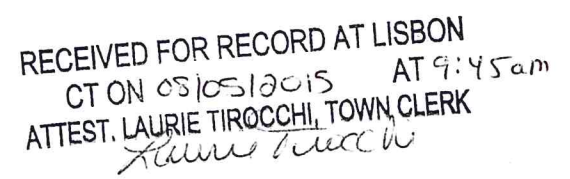 RECEIVED FOR RECORD AT LISBON
CT ON 05/05/2015 AT 9:45am
ATTEST. LAURIE TIROCCHI, TOWN CLERK
Laurie Tirocchi